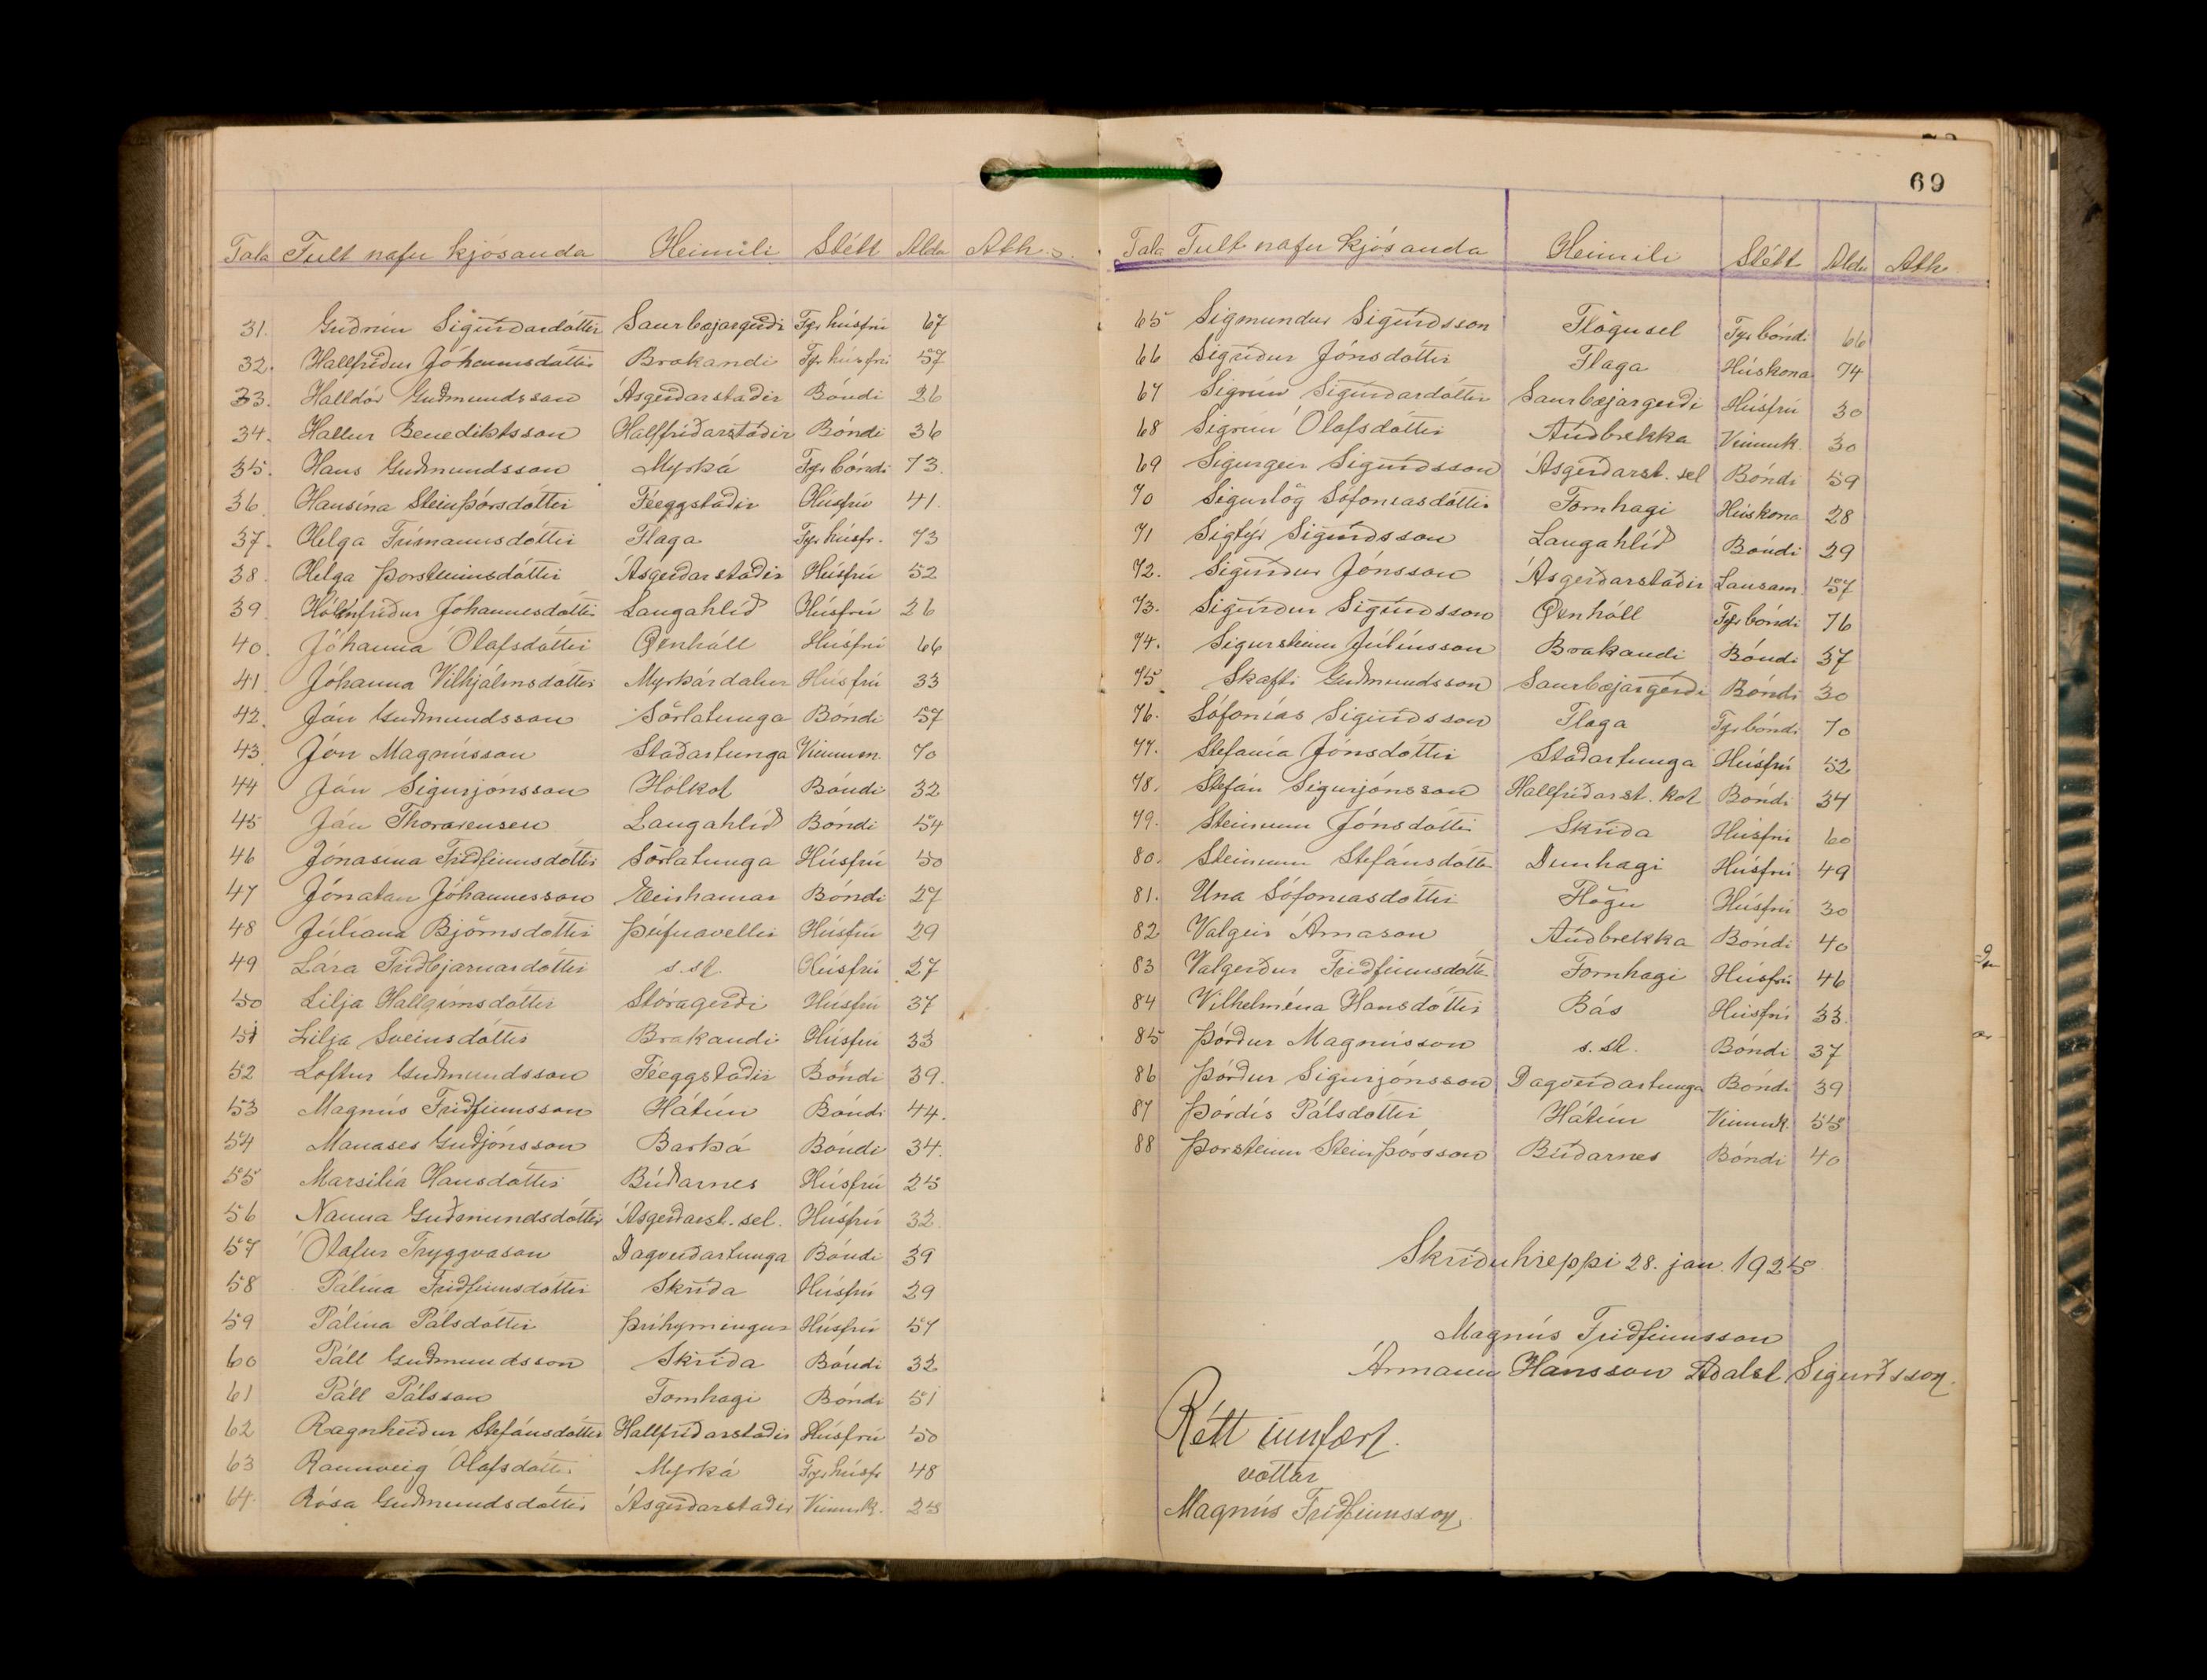 69
Tala Fult nafn kjósanda Heimili Stétt Aldur Ath.
31. Guðrún Sigurðardóttir Saurbæjargerði Fyr húsfrú 67
32. Hallfríður Jóhannsdóttir Brakandi Fyr húsfrú 57
33. Halldór Guðmundsson Ásgerðarstaðir Bóndi 26
34. Hallur Benediktsson Hallfríðarstaðir Bóndi 36
35. Hans Guðmundsson Myrká Fyr bóndi 73.
36. Hansína Steinþórsdóttir Féeggstaðir Húsfrú 41.
37. Helga Frímannsdóttir Flaga Fyr húsfr. 73
38. Helga Þorsteinsdóttir Ásgerðarstaðir Húsfrú 52
39. Hólmfríður Jóhannesdóttir Langahlíð Húsfrú 26
40. Jóhanna Ólafsdóttir Öxnhóll Húsfrú 66
41. Jóhanna Vilhjálmsdóttir Myrkárdalur Húsfrú 33
42. Jón Guðmundsson Sörlatunga Bóndi 57
43. Jón Magnússon Staðartunga Vinnum. 70
44 Jón Sigurjónsson Hólkot Bóndi 32
45 Jón Thorarensen Langahlíð Bóndi 54
46 Jónasína Friðfinnsdóttir Sörlatunga Húsfrú 50
47 Jónatan Jóhannesson Einhamar Bóndi 27
48 Júlíana Björnsdóttir Þúfnavellir Húsfrú 29
49 Lára Friðbjarnardóttir s.st. Húsfrú 27
50 Lilja Hallgímsdóttir Stóragerði Húsfrú 37
51 Lilja Sveinsdóttir Brakandi Húsfrú 33
52 Loftur Guðmundsson Féeggstaðir Bóndi 39.
53 Magnús Friðfinnsson Hátún Bóndi 44.
54 Manases Guðjónsson Barká Bóndi 34.
55 Marsilía Hansdóttir Búðarnes Húsfrú 25
56 Nanna Guðmundsdóttir Ásgerðarst. sel. Húsfrú 32.
57 Ólafur Tryggvason Dagverðartunga Bóndi 39
58 Pálína Friðfinnsdóttir Skriða Húsfrú 29
59 Pálína Pálsdóttir Þríhyrningur Húsfrú 57
60 Páll Guðmundsson Skriða Bóndi 32
61 Páll Pálsson Fornhagi Bóndi 51
62 Ragnheiður Stefánsdóttir Hallfríðarstaðir Húsfrú 50
63 Rannveig Ólafsdóttir Myrká Fyr húsfr 48
64. Rósa Guðmundsdóttir Ásgerðarstaðir Vinnuk. 25
Tala Fult nafn kjósanda Heimili Stétt Aldur Ath
65 Sigmundur Sigurðsson Flögusel Fyr bóndi 66
66 Sigríður Jónsdóttir Flaga Húskona 74
67 Sigrún Sigurðardóttir Saurbæjargerði Húsfrú 30
68 Sigrún Ólafsdóttir Auðbrekka Vinnuk. 30
69 Sigurgeir Sigurðsson Ásgerðarst. sel Bóndi 59
70 Sigurlög Sófoníasdóttir Fornhagi Húskona 28
71 Sigtýr Sigurðsson Langahlíð Bóndi 29
72. Sigurður Jónsson Ásgerðarstaðir Lausam. 57
73. Sigurður Sigurðsson Öxnhóll Fyr bóndi 76
74. Sigursteinn Júlíusson Brakandi Bóndi 37
75 Skafti Guðmundsson Saurbæjargerði Bóndi 30
76. Sófonías Sigurðsson Flaga Fyr bóndi 70
77. Stefanía Jónsdóttir Staðartunga Húsfrú 52
78. Stefán Sigurjónsson Hallfríðarst. kot Bóndi 34
79. Steinunn Jónsdóttir Skriða Húsfrú 60
80. Steinunn Stefánsdóttir Dunhagi Húsfrú 49
81. Una Sófoníasdóttir Flögu Húsfrú 30
82 Valgeir Árnason Auðbrekka Bóndi 40
83 Valgerður Friðfinnsdóttir Fornhagi Húsfrú 46
84 Vilhelmína Hansdóttir Bás Húsfrú 33.
85 Þórður Magnússon s.st. Bóndi 37
86 Þórður Sigurjónsson Dagverðartunga Bóndi 39
87 Þórdís Pálsdóttir Hátún Vinnuk. 55
88 Þorsteinn Steinþórsson Búðarnes Bóndi 40
Skriðuhreppi 28. jan. 1925
Magnús Friðfinnsson
Ármann Hansson Aðalst Sigurðsson.
Rétt innfært.
vottar
Magnús Friðfinnsson.